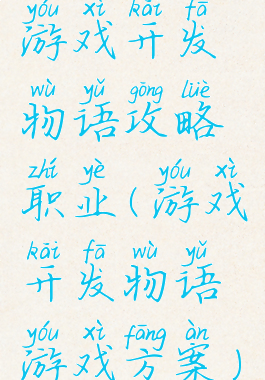 yóu xì kāi fā
游戏开发
wù yǔ gōng lüè
物语攻略
zhí yè yóu xì
职业(游戏
kāi fā wù yǔ
开发物语
yóu xì fāng àn
游戏方案)